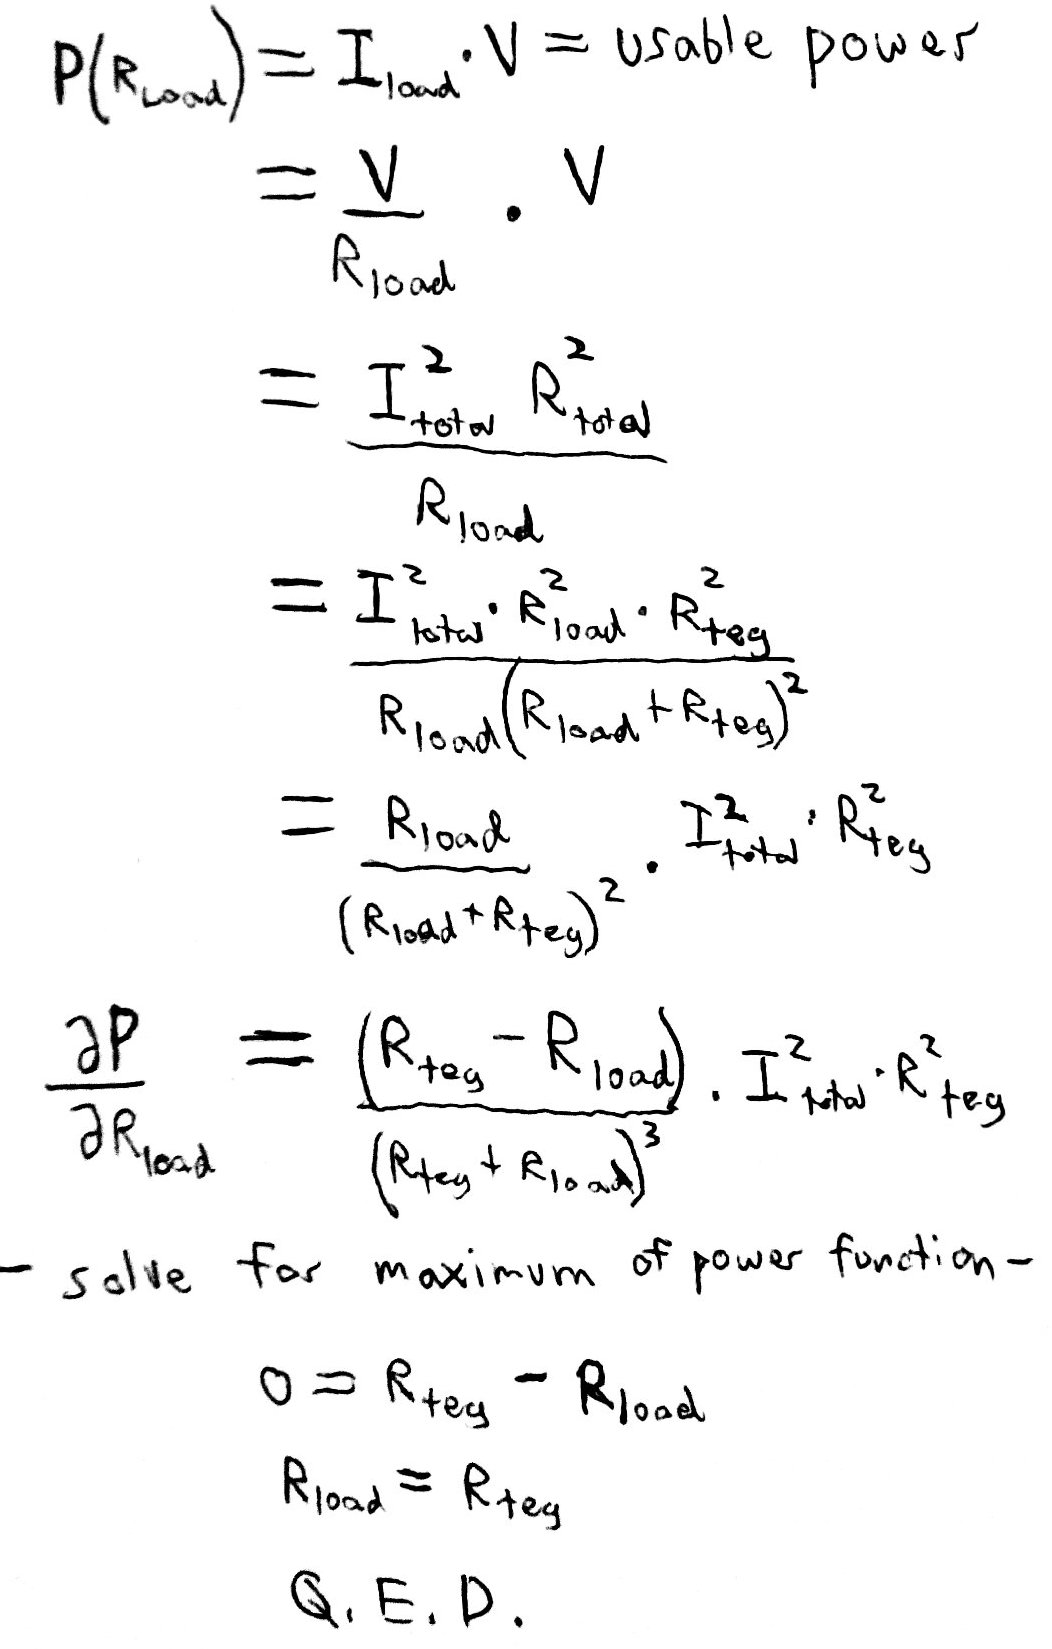 P(R_Load) = I_load · V = usable power
= V / R_load · V
= I_total^2 R_total^2 / R_load
= I_total^2 · R_load^2 · R_teg^2 / R_load (R_load + R_teg)^2
= R_load / (R_load + R_teg)^2 · I_total^2 · R_teg^2
∂P / ∂R_load = (R_teg - R_load) / (R_teg + R_load)^3 · I_total^2 · R_teg^2
- solve for maximum of power function -
0 = R_teg - R_load
R_load = R_teg
Q.E.D.